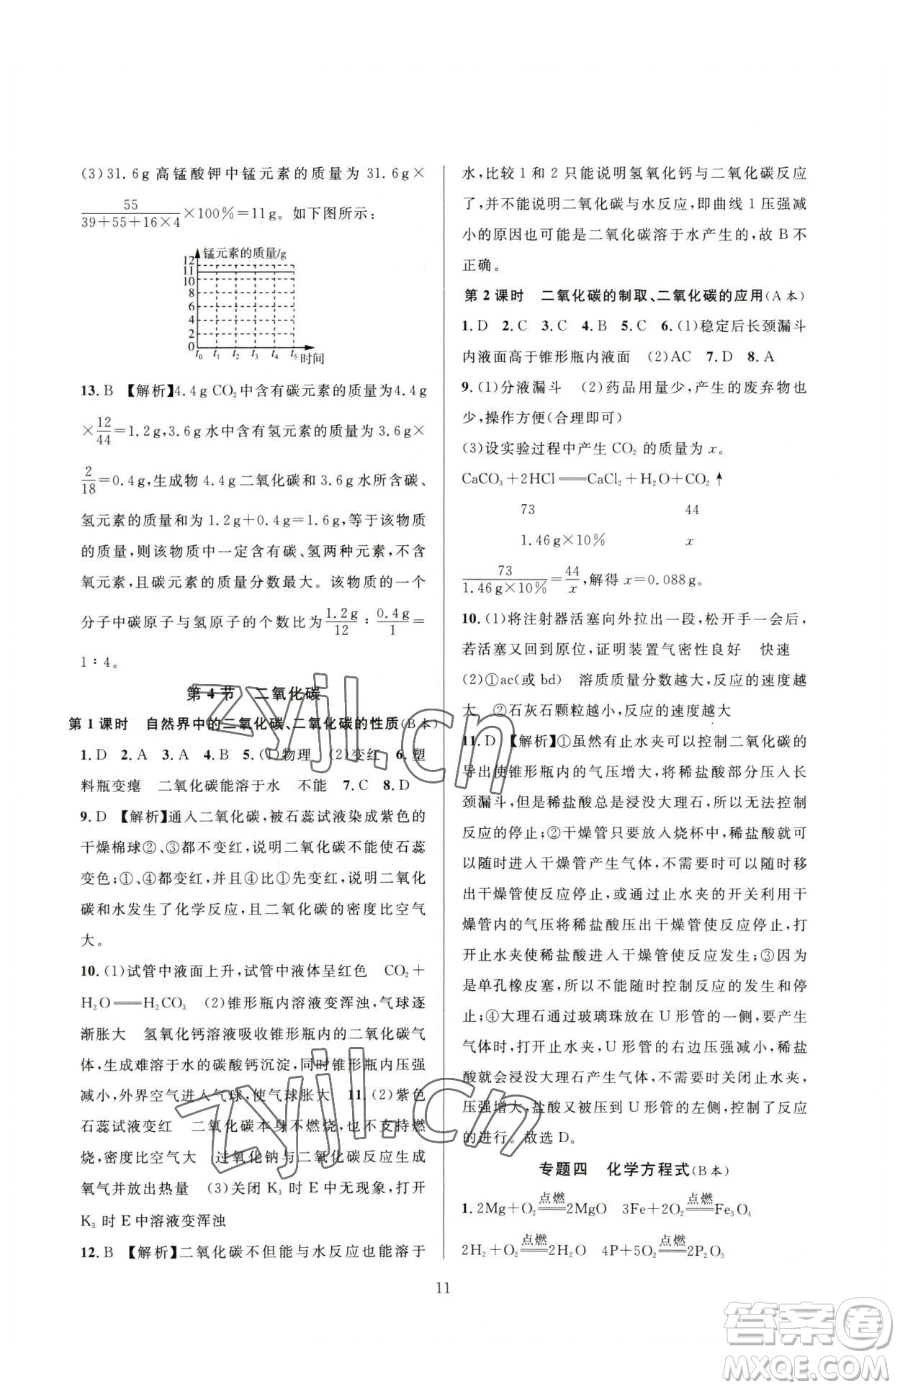 (3)31.6g高锰酸钾中锰元素的质量为31.6g×
55/(39+55+16×4)×100%=11g。如下图所示：
锰元素的质量/g
12
11
10
8
6
4
2
0
t₀ t₁ t₂ t₃ t₄ t₅ 时间
13.B 【解析】4.4g CO₂中含有碳元素的质量为4.4g
×12/44=1.2g,3.6g水中含有氢元素的质量为3.6g×
2/18=0.4g,生成物4.4g二氧化碳和3.6g水所含碳、
氢元素的质量和为1.2g+0.4g=1.6g,等于该物质
的质量,则该物质中一定含有碳、氢两种元素,不含
氧元素,且碳元素的质量分数最大。该物质的一个
分子中碳原子与氢原子的个数比为1.2g/12∶0.4g/1=
1∶4。
第4节 二氧化碳
第1课时 自然界中的二氧化碳、二氧化碳的性质(B本)
1.D 2.A 3.A 4.B 5.(1)物理 (2)变红 6.塑
料瓶变瘪 二氧化碳能溶于水 不能 7.C 8.D
9.D 【解析】通入二氧化碳,被石蕊试液染成紫色的
干燥棉球②、③不变红,说明二氧化碳不能使石蕊
变色;①、④变红且④比①先变红,说明二氧化
碳和水发生了化学反应,且二氧化碳的密度比空气
大。
10.(1)试管中液面上升,试管中液体呈红色 CO₂+
H₂O══H₂CO₃ (2)锥形瓶内溶液变浑浊,气球逐
渐胀大 氢氧化钙溶液吸收锥形瓶内的二氧化碳气
体,生成难溶于水的碳酸钙沉淀,锥形瓶内压强
减小,外界空气进入气球,使气球胀大 11.(2)紫色
石蕊试液变红 二氧化碳本身不燃烧,也不支持燃
烧,密度比空气大 过氧化钠与二氧化碳反应,生成
氧气并放出热量 (3)关闭K₃时E中无现象,打开
K₃时E中溶液变浑浊
12.B 【解析】二氧化碳不但能与水反应也能溶于
水,比较1和2只能说明氢氧化钙与二氧化碳反应
了,并不能说明二氧化碳与水反应,即曲线1压强减
小的原因也可能是二氧化碳溶于水产生的,故B不
正确。
第2课时 二氧化碳的制取、二氧化碳的应用(A本)
1.D 2.C 3.C 4.B 5.C 6.(1)稳定后长颈漏斗
内液面高于锥形瓶内液面 (2)AC 7.D 8.A
9.(1)分液漏斗 (2)药品用量少,产生的废弃物也
少,操作方便(合理即可)
(3)设实验过程中产生CO₂的质量为x。
CaCO₃+2HCl══CaCl₂+H₂O+CO₂↑
73 44
1.46g×10% x
73/(1.46g×10%)=44/x,解得x=0.088g。
10.(1)将注射器活塞向外拉出一段,松开手一会后,
若活塞又回到原位,证明装置气密性良好 快速
(2)①ac(或bd) 溶质质量分数越大,反应的速度越
大 ②石灰石颗粒越小,反应的速度越大
11.D 【解析】①虽然有止水夹可以控制二氧化碳的
导出使锥形瓶内的气压增大,将稀盐酸部分压入
长颈漏斗,但稀盐酸总是浸没大理石,所以无法控制
反应的停止;②干燥管如果放入烧杯中,稀盐酸可
以随时进入干燥管产生气体,如果稀盐酸可以随时离
开干燥管使反应停止,则通过止水夹的开关利用干
燥管内的气压将稀盐酸压出干燥管使反应停止,打
开止水夹,稀盐酸进入干燥管使反应发生;③橡皮塞
是单孔橡皮塞,不能控制反应;④大理石通
过玻璃珠放在U形管的一侧,要产生
气体时,打开止水夹,U形管的右边压强减小,稀盐
酸就会浸没大理石产生气体,如果关闭止水夹,右侧
压强增大,盐酸又被压到U形管的左侧,控制了反应
的进行。故选D。
专题四 化学方程式(B本)
1.2Mg+O₂ 点燃══ 2MgO 3Fe+2O₂ 点燃══ Fe₃O₄
2H₂+O₂ 点燃══ 2H₂O 4P+5O₂ 点燃══ 2P₂O₅
11
zyjl.cn
zyjl.cn
答案圈
MXQE.COM